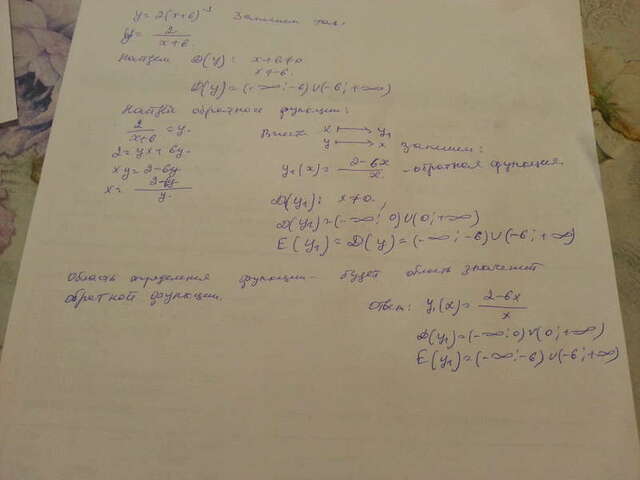 y = 2(x+6)⁻¹ Запишем так:
y = 2/(x+6)
Найдем D(y): x+6≠0
x≠-6.
D(y)=(-∞;-6)∪(-6;+∞)
обратной функции:
2/(x+6) = y.
2 = yx + 6y.
xy = 2-6y
x = (2-6y)/y.
Вместо x ↦ y₁
y ↦ x Запишем:
y₁(x) = (2-6x)/x - обратная функция.
D(y₁): x≠0.
D(y₁)=(-∞;0)∪(0;+∞)
E(y₁)=D(y)=(-∞;-6)∪(-6;+∞)
Область определения функции - будет область значений
обратной функции.
Ответ: y₁(x) = (2-6x)/x
D(y₁)=(-∞;0)∪(0;+∞)
E(y₁)=(-∞;-6)∪(-6;+∞)